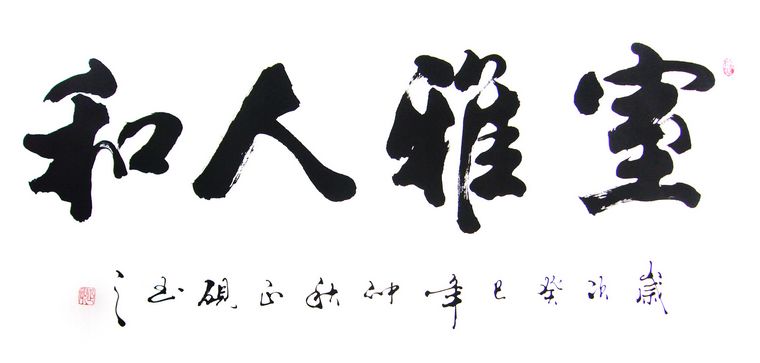 室雅人和
歲次癸巳年仲秋正硯书之